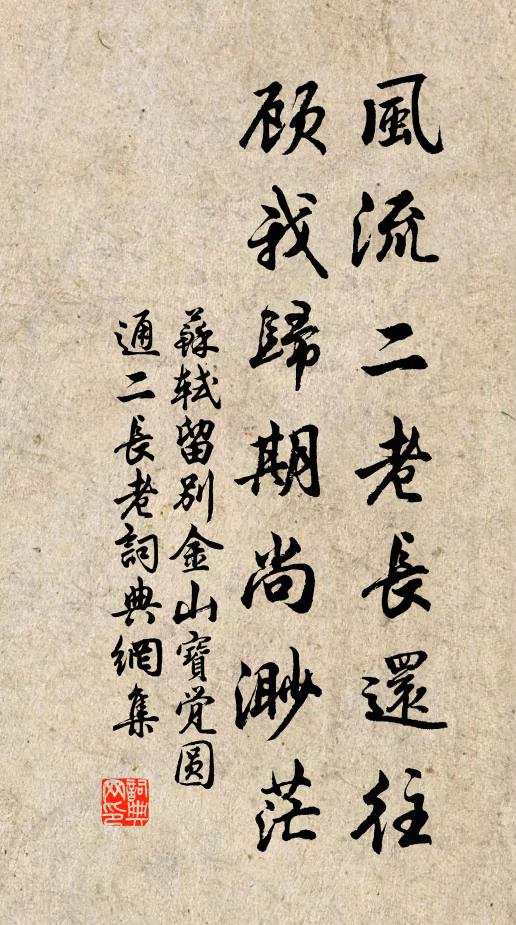 風流二老長還往
顾我歸期尚渺茫
蘇軾留別金山寶覚圓
通二長老詞典網集
詞典网印